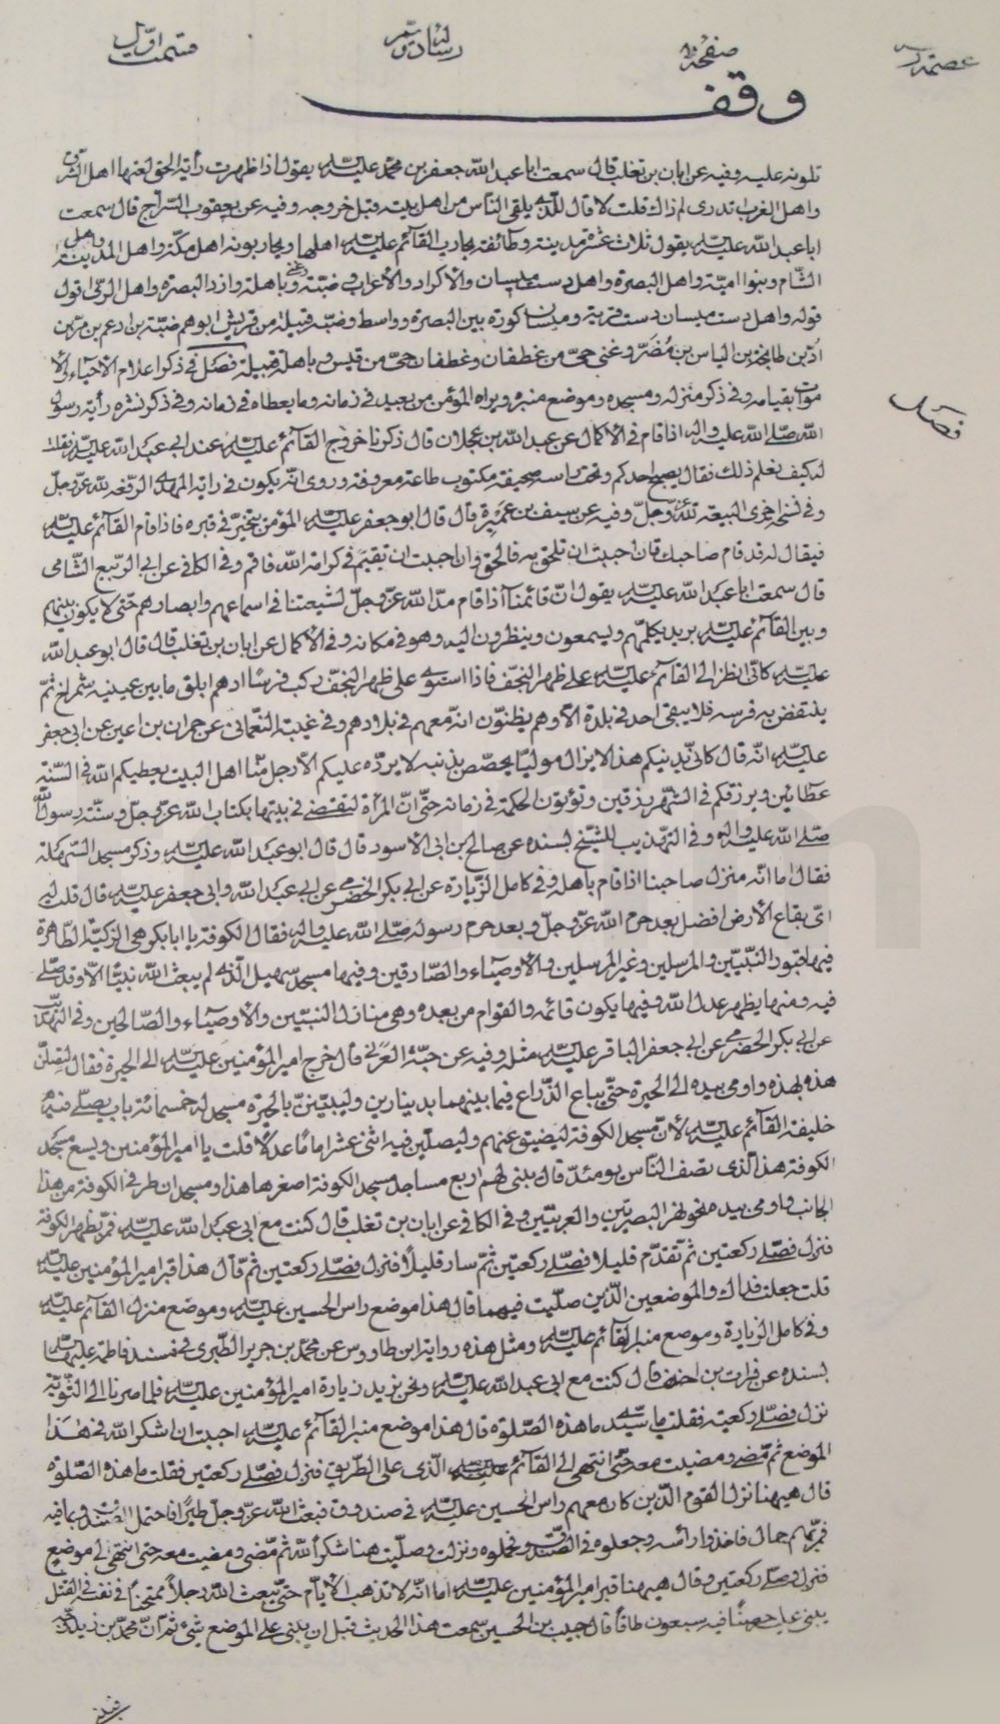 عصمت رسالة دويم قسمت اوّل
صفحة
وقف
تلونه عليه وفيه عن ابان بن تغلب قال سمعت ابا عبد الله جعفر بن محمد عليه السلام يقول اذا ظهرت رأية الحق لعنها اهل الشرق
واهل الغرب اتدرى لم ذاك قلت لا قال للذى يلقى الناس من اهل بيته قبل خروجه وفيه عن يعقوب السراج قال سمعت
ابا عبد الله عليه السلام يقول ثلاث عشرة مدينة وطائفة يحارب القائم عليه السلام اهلها ويحاربونه اهل مكة واهل المدينة واهل
الشام وبنوا امية واهل البصرة واهل دست ميسان والاكراد والاعراب وضبة وغنى وباهلة وازد البصرة واهل الرى اقول
قوله واهل دست ميسان دست قرية وميسان كورة بين البصرة وواسط وضبه قبيلة من قريش ابوهم ضبة بن اد عم بن مرّ بن
ادّ بن طابخة بن الياس بن مضر وغنى حىّ من غطفان وغطفان حىّ من قيس وباهلة قبيلة فصل فى ذكر اعلام الاحياء والا
موات بقيامه وفى ذكر منزله ومسجده وموضع منبره ويراه المؤمن من بعيد فى زمانه وما يعطاه فى زمانه وفى ذكر نشره رأية رسول
فصل
الله صلى الله عليه واله اذا قام فى الاكمال عن عبد الله بن عجلان قال ذكرنا خروج القائم عليه السلام عند ابى عبد الله عليه السلام فقلت
له كيف نعلم ذلك فقال يصبح احدكم وتحت راسه صحيفة مكتوب طاعة معروفة وروى انه يكون فى راية المهدى الرفعة لله عز وجل
وفى نسخة اخرى البيعة لله عز وجل وفيه عن سيف بن عميرة قال قال ابو جعفر عليه السلام المؤمن يخيّر فى قبره فاذا قام القائم عليه السلام
فيقال له قد قام صاحبك فان احببت ان تلحق به فالحق وان احببت ان تقيم فى كرامة الله فاقم وفى الكافى عن ابى الربيع الشامى
قال سمعت ابا عبد الله عليه السلام يقول انّ قائمنا اذا قام مدّ الله عز وجل لشيعتنا فى اسماعهم وابصارهم حتى لا يكون بينهم
وبين القائم عليه السلام بريد يكلمهم ويسمعون وينظرون اليه وهو فى مكانه وفى الاكمال عن ابان بن تغلب قال قال ابو عبد الله
عليه السلام كانّى انظر الى القائم عليه السلام على ظهر النجف فاذا استوى على ظهر النجف ركب فرسًا ادهم ابلق ما بين عينيه شمراخ ثمّ
ينتفض به فرسه فلا يبقى احد فى بلدة الّا وهم يظنون انه معهم فى بلادهم وفى غيبة النعمانى عن حمران بن اعين عن ابى جعفر
عليه السلام انّه قال كانّى بدينكم هذا لا يزال موليّا يفحص بذنبه لا يردّه عليكم الّا رجل منّا اهل البيت يعطيكم الله فى السنة
عطائين ويرزقكم فى الشهر رزقين وتؤتون الحكمة فى زمانه حتّى انّ المرأة لتقضى فى بيتها بكتاب الله عز وجل وسنة رسول الله
صلى الله عليه واله وفى التهذيب للشيخ بسنده عن صالح بن ابى الاسود قال قال ابو عبد الله عليه السلام وذكر مسجد السهلة
فقال اما انّه منزل صاحبنا اذا قام باهله وفى كامل الزيارة عن ابى بكر الحضرمى عن ابى عبد الله وابى جعفر عليه السلام قال قلت له
اىّ بقاع الارض افضل بعد حرم الله عز وجل وبعد حرم رسوله صلى الله عليه واله فقال الكوفة يا ابا بكر هى الزكية الطاهرة
فيها قبور النبيّين والمرسلين وغير المرسلين والاوصياء والصادقين وفيها مسجد سهيل الّذى لم يبعث الله نبيّا الّا وقد صلى
فيه ومنها يظهر عدل الله وفيها يكون قائمه والقوام من بعده وهى منازل النبيين والاوصياء والصالحين وفى التهذيب
عن ابى بكر الحضرمى عن ابى جعفر الباقر عليه السلام مثله وفيه عن حبّة العرنى قال خرج امير المؤمنين عليه السلام الى الحيرة فقال لتصلنّ
هذه بهذه واومى بيده الى الحيرة حتّى يباع الذراع فيما بينهما بدينارين وليبنينّ بالحيرة مسجد له خمسمائة باب يصلى فيه
خليفة القائم عليه السلام لانّ مسجد الكوفة ليضيق عنهم وليصلين فيه اثنى عشر امامًا عدلًا قلت يا امير المؤمنين ويسع مسجد
الكوفة هذا الذى تصف الناس يومئذ قال يبنى لهم اربع مساجد مسجد الكوفة اصغرها هذا ومسجدان طرفى الكوفة من هذا
الجانب واومى بيده نحو نهر البصريّين والغربيّين وفى الكافى عن ابان بن تغلب قال كنت مع ابى عبد الله عليه السلام فمرّ بظهر الكوفة
فنزل فصلى ركعتين ثم تقدّم قليلا فصلى ركعتين ثمّ سار قليلًا فنزل فصلى ركعتين ثم قال هذا قبر امير المؤمنين عليه السلام
قلت جعلت فداك والموضعين الّذين صلّيت فيهما قال هذا موضع راس الحسين عليه السلام وموضع منزل القائم عليه السلام
وفى كامل الزيارة وموضع منبر القائم عليه السلام ومثل هذه رواية ابن طاووس عن محمد بن جرير الطبرى فى مسند فاطمة عليها السلام
بسنده عن فرات بن احنف قال كنت مع ابى عبد الله عليه السلام ونحن نريد زيارة امير المؤمنين عليه السلام فلما صرنا الى الثوية
نزل فصلى ركعتين فقلت يا سيدى ما هذه الصلوة قال هذا موضع منبر القائم عليه السلام احببت ان اشكر الله فى هذا
الموضع ثم مضى ومضيت معه حتى انتهى الى القائم الّذى على الطريق فنزل فصلى ركعتين فقلت ما هذه الصلوة
قال هيهنا نزل القوم الّذين كان معهم راس الحسين عليه السلام فى صندوق فبعث الله عز وجل طيرًا فاحتمل الصندوق بما فيه
فمرّ بهم جمال فاخذوا رأسه وجعلوه فى الصندوق وحملوه ونزلت وصليت هنا شكرا لله ثم مضى ومضيت معه حتى انتهى الى موضع
فنزل وصلى ركعتين وقال هيهنا قبر امير المؤمنين عليه السلام اما انّه لا تذهب الايّام حتى يبعث الله رجلًا ممتحنًا فى نفسه فى القتل
يبنى عليه حصنًا فيه سبعون طاقًا قال حبيب بن الحسين سمعت هذا الحديث قبل ان يبنى على الموضع شئ ثم انّ محمد بن زيد